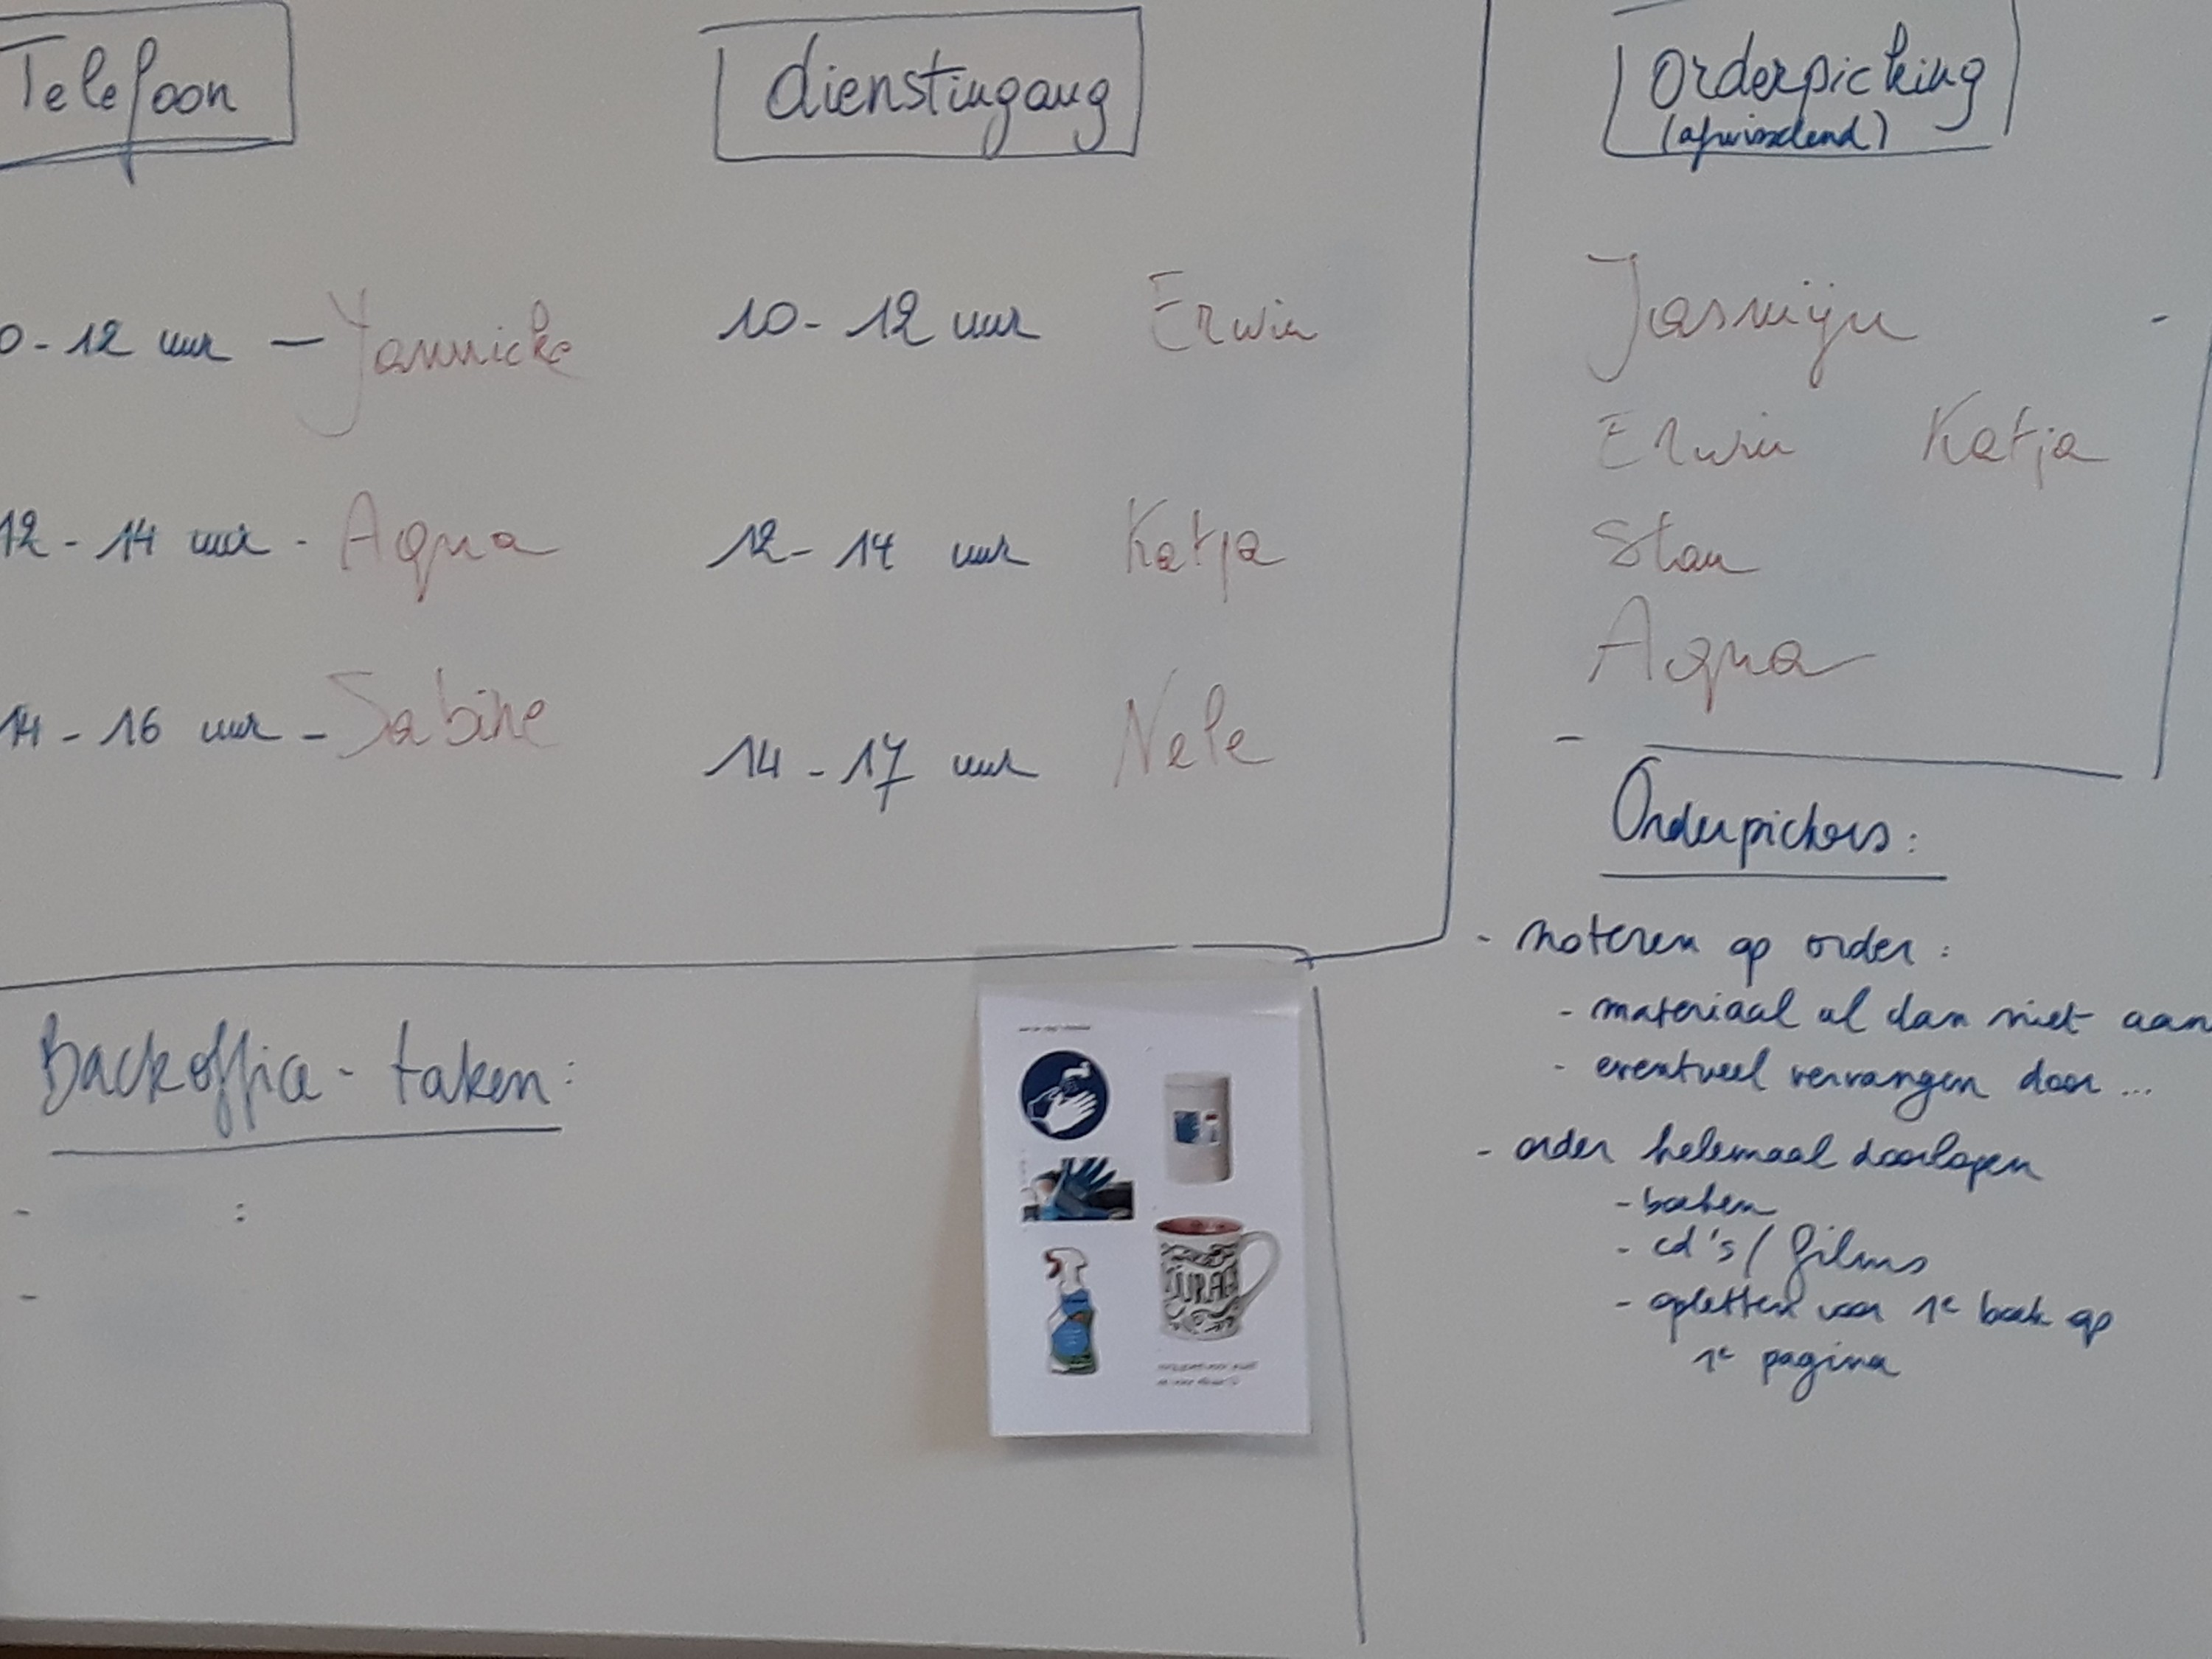 Telefoon
0-12 uur - Yannicke
12-14 uur - Aqua
14-16 uur - Sabine
dienstingang
10-12 uur Erwin
12-14 uur Katja
14-17 uur Nele
Orderpicking
(afwisselend)
Jasmijn
Erwin Katja
Stan
Aqua
-
Orderpickers:
- noteren op order:
- materiaal al dan niet aan
- eventueel vervangen door ...
- order helemaal doorlopen
- boeken
- cd's / films
- opletten voor 1e boek op
1e pagina
Backoffice-taken:
- :
-